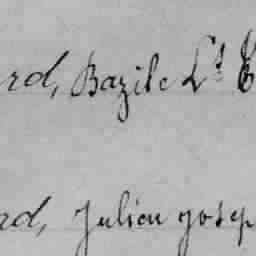 rd, Bazile Lt E
rd, Julien Josep